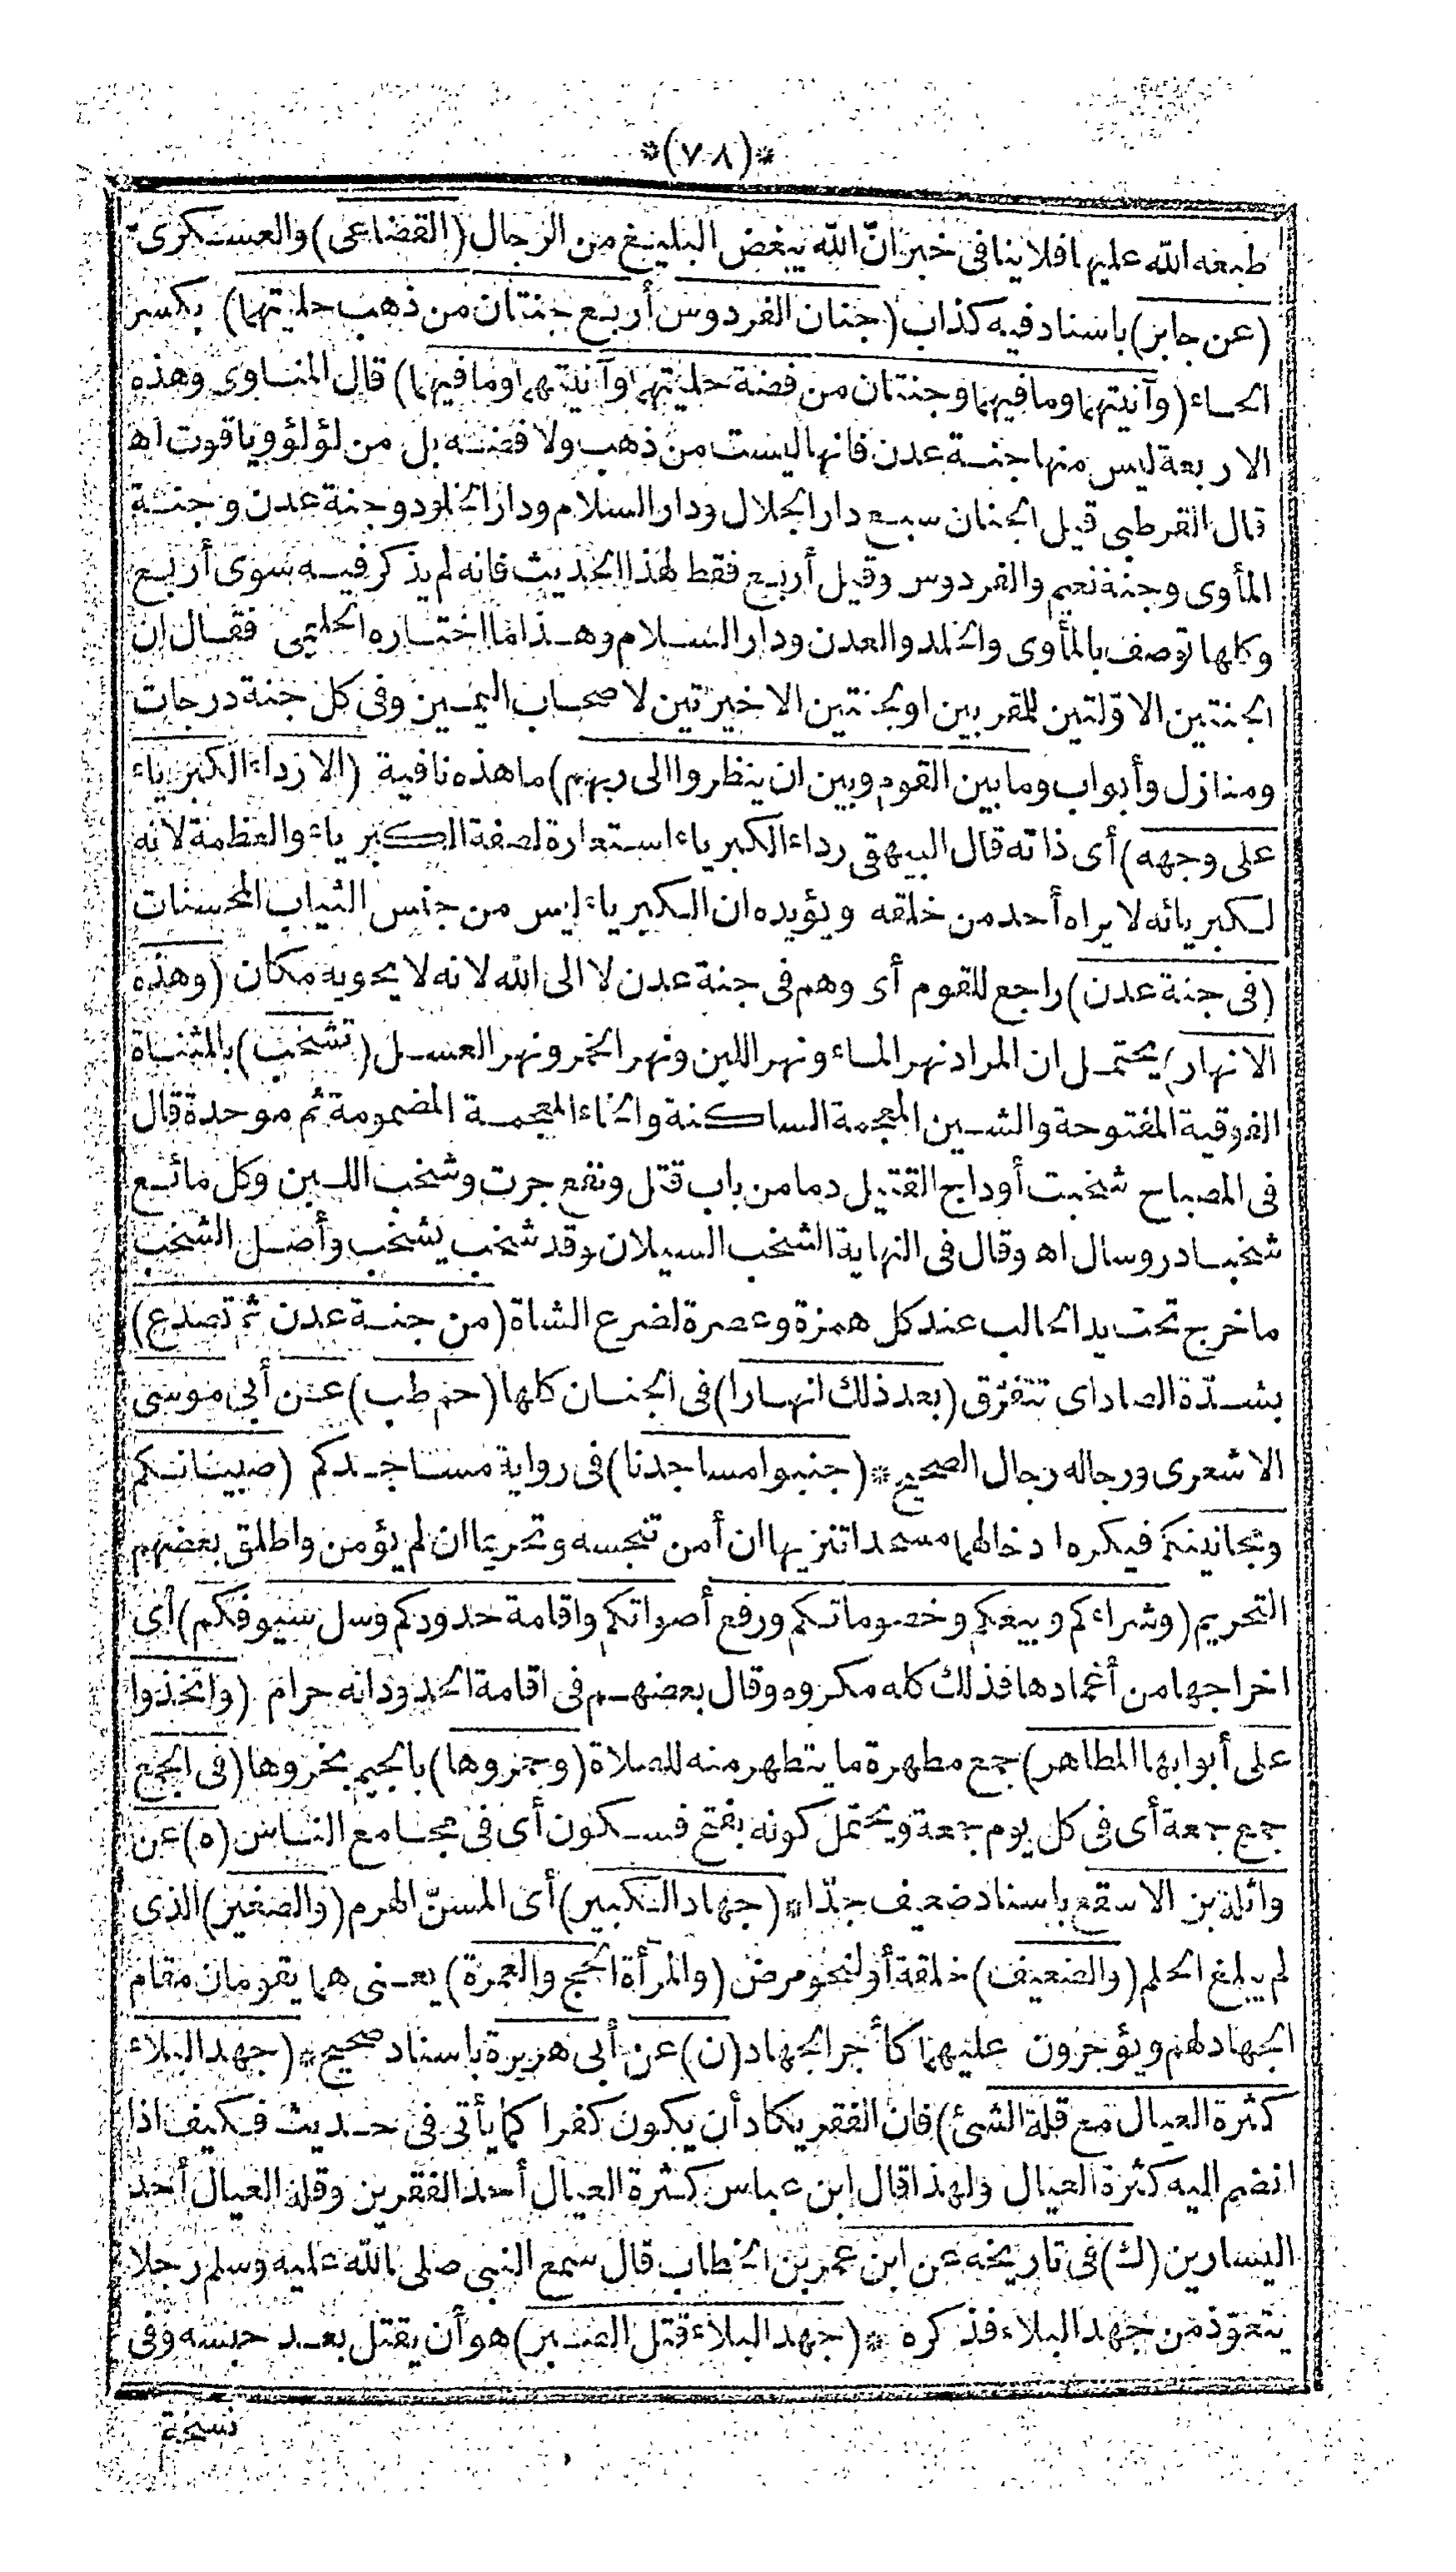 *(٧٨)*
طبعه الله عليها فلا ينافى خبر انّ الله يبغض البليغ من الرجال (القضاعى) والعسكرى
(عن جابر) باسناد فيه كذاب (جنان الفردوس أربع جنتان من ذهب حليتهما) بكسر
الحاء (وآنيتهما وما فيهما وجنتان من فضة حليتهما وآنيتهما وما فيهما) قال المناوى وهذه
الاربعة ليس منها جنة عدن فانها ليست من ذهب ولا فضة بل من لؤلؤ وياقوت اه
قال القرطبى قيل الجنان سبع دار الجلال ودار السلام ودار الخلود وجنة عدن وجنة
المأوى وجنة نعيم والفردوس وقيل أربع فقط لهذا الحديث فانه لم يذكر فيه سوى أربع
وكلها توصف بالمأوى والخلد والعدن ودار السلام وهذا ما اختاره الحليمى فقال ان
الجنتين الاوّلتين للمقربين والجنتين الاخيرتين لاصحاب اليمين وفى كل جنة درجات
ومنازل وأبواب وما بين القوم وبين ان ينظروا الى ربهم) ما هذه نافية (الا رداء الكبرياء
على وجهه) أى ذاته قال البيهقى رداء الكبرياء استعارة لصفة الكبرياء والعظمة لانه
لكبريائه لا يراه أحد من خلقه ويؤيده ان الكبرياء ليس من جنس الثياب المحسنات
(فى جنة عدن) راجع للقوم أى وهم فى جنة عدن لا الى الله لانه لا يحويه مكان (وهذه
الانهار) يحتمل ان المراد نهر الماء ونهر اللبن ونهر الخمر ونهر العسل (تشخب) بالمثناة
الفوقية المفتوحة والشين المعجمة الساكنة والخاء المعجمة المضمومة ثم موحدة قال
فى المصباح شخبت أوداج القتيل دما من باب قتل ونفع جرت وشخب اللبن وكل مائع
شخبا در وسال اه وقال فى النهاية الشخب السيلان وقد شخب يشخب وأصل الشخب
ما خرج تحت يد الحالب عند كل همزة وعصرة لضرع الشاة (من جنة عدن ثم تصدع)
بشدّة الصاد اى تتفرّق (بعد ذلك انهارا) فى الجنان كلها (حم طب) عن أبى موسى
الاشعرى ورجاله رجال الصحيح * (جنبوا مساجدنا) فى رواية مساجدكم (صبيانكم
ومجانينكم فيكره ادخالهما مسجدا تنزيها ان أمن تنجسه وتحريما ان لم يؤمن واطلق بعضهم
التحريم (وشراءكم وبيعكم وخصوماتكم ورفع أصواتكم واقامة حدودكم وسل سيوفكم) أى
اخراجها من أغمادها فذلك كله مكروه وقال بعضهم فى اقامة الحدود انه حرام (واتخذوا
على أبوابها المطاهر) جمع مطهرة ما يتطهر منه للصلاة (وجمروها) بالجيم بخروها (فى الجمع
جمع جمعة أى فى كل يوم جمعة ويحتمل كونه بفتح فسكون أى فى مجامع الناس (ه) عن
واثلة بن الاسقع باسناد ضعيف جدّا * (جهاد الكبير) أى المسنّ الهرم (والصغير) الذى
لم يبلغ الحلم (والضعيف) خلقة أو لنحو مرض (والمرأة الحج والعمرة) يعنى هما يقومان مقام
الجهاد لهم ويؤجرون عليهما كأجر الجهاد (ن) عن أبى هريرة باسناد صحيح * (جهد البلاء
كثرة العيال مع قلة الشئ) فان الفقر يكاد أن يكون كفرا كما يأتى فى حديث فكيف اذا
انضم اليه كثرة العيال ولهذا قال ابن عباس كثرة العيال أحد الفقرين وقلة العيال أحد
اليسارين (ك) فى تاريخه عن ابن عمر بن الخطاب قال سمع النبى صلى الله عليه وسلم رجلا
يتعوّذ من جهد البلاء فذكره * (جهد البلاء قتل الصبر) هو أن يقتل بعد حبسه وفى
نسخة